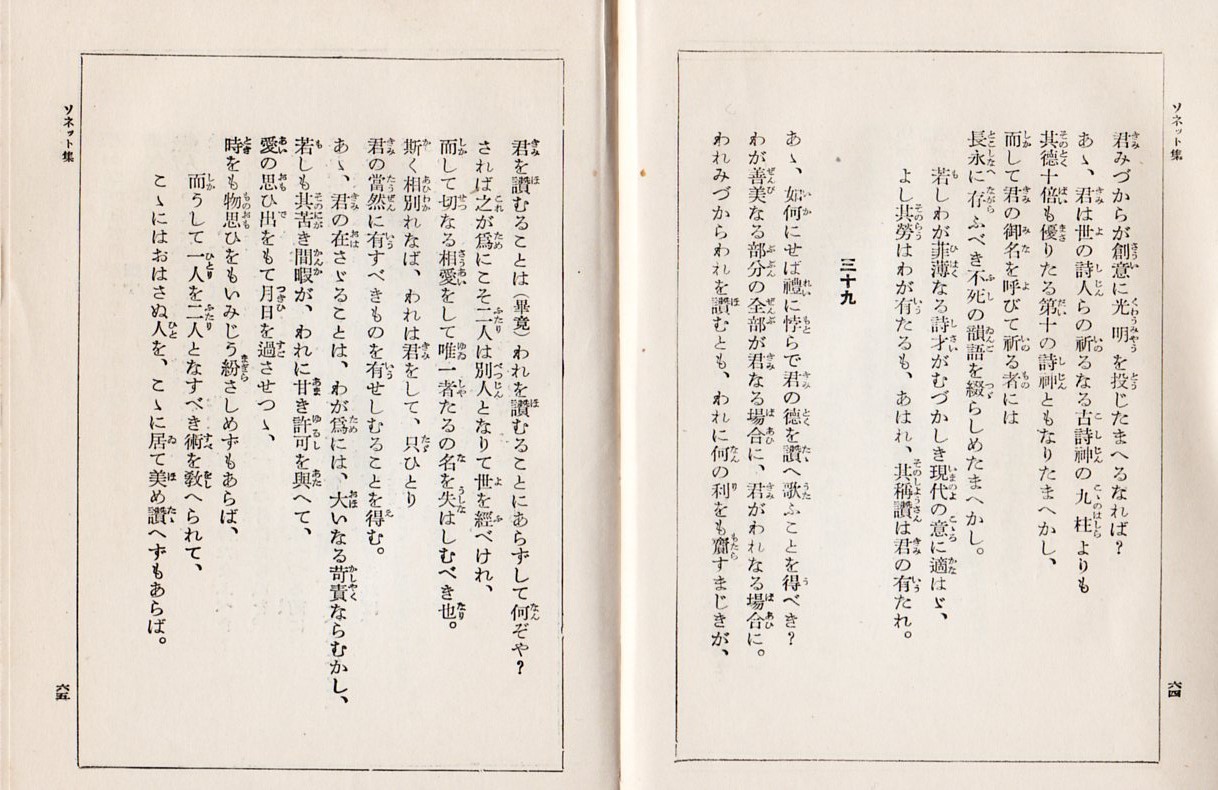 ソネット集
君みづからが創意に光明を投じたまへるなれば？
あゝ、君は世の詩人らの祈るなる古詩神の九柱よりも
其德十倍も優りたる第十の詩神ともなりたまへかし、
而して君の御名を呼びて祈る者には
長永に存ふべき不死の韻語を綴らしめたまへかし。
若しわが菲薄なる詩才がむづかしき現代の意に適はゞ、
よし其勞はわが有たるも、あはれ、其稱讃は君の有たれ。
三十九
あゝ、如何にせば禮に悖らで君の德を讃へ歌ふことを得べき？
わが善美なる部分の全部が君なる場合に、君がわれなる場合に。
われみづからわれを讃むとも、われに何の利をも齎すまじきが、
六四
君を讃むることは（畢竟）われを讃むることにあらずして何ぞや？
されば之が爲にこそ二人は別人となりて世を經べけれ、
而して切なる相愛をして唯一者たるの名を失はしむべき也。
斯く相別れなば、われは君をして、只ひとり
君の當然に有すべきものを有せしむることを得む。
あゝ、君の在さゞることは、わが爲には、大いなる苛責ならむかし、
若しも其苦き間暇が、われに甘き許可を與へて、
愛の思ひ出をもて月日を過させつゝ、
時をも物思ひをもいみじう紛さしめずもあらば、
而うして一人を二人となすべき術を敎へられて、
こゝにはおはさぬ人を、こゝに居て美め讃へずもあらば。
ソネット集
六五